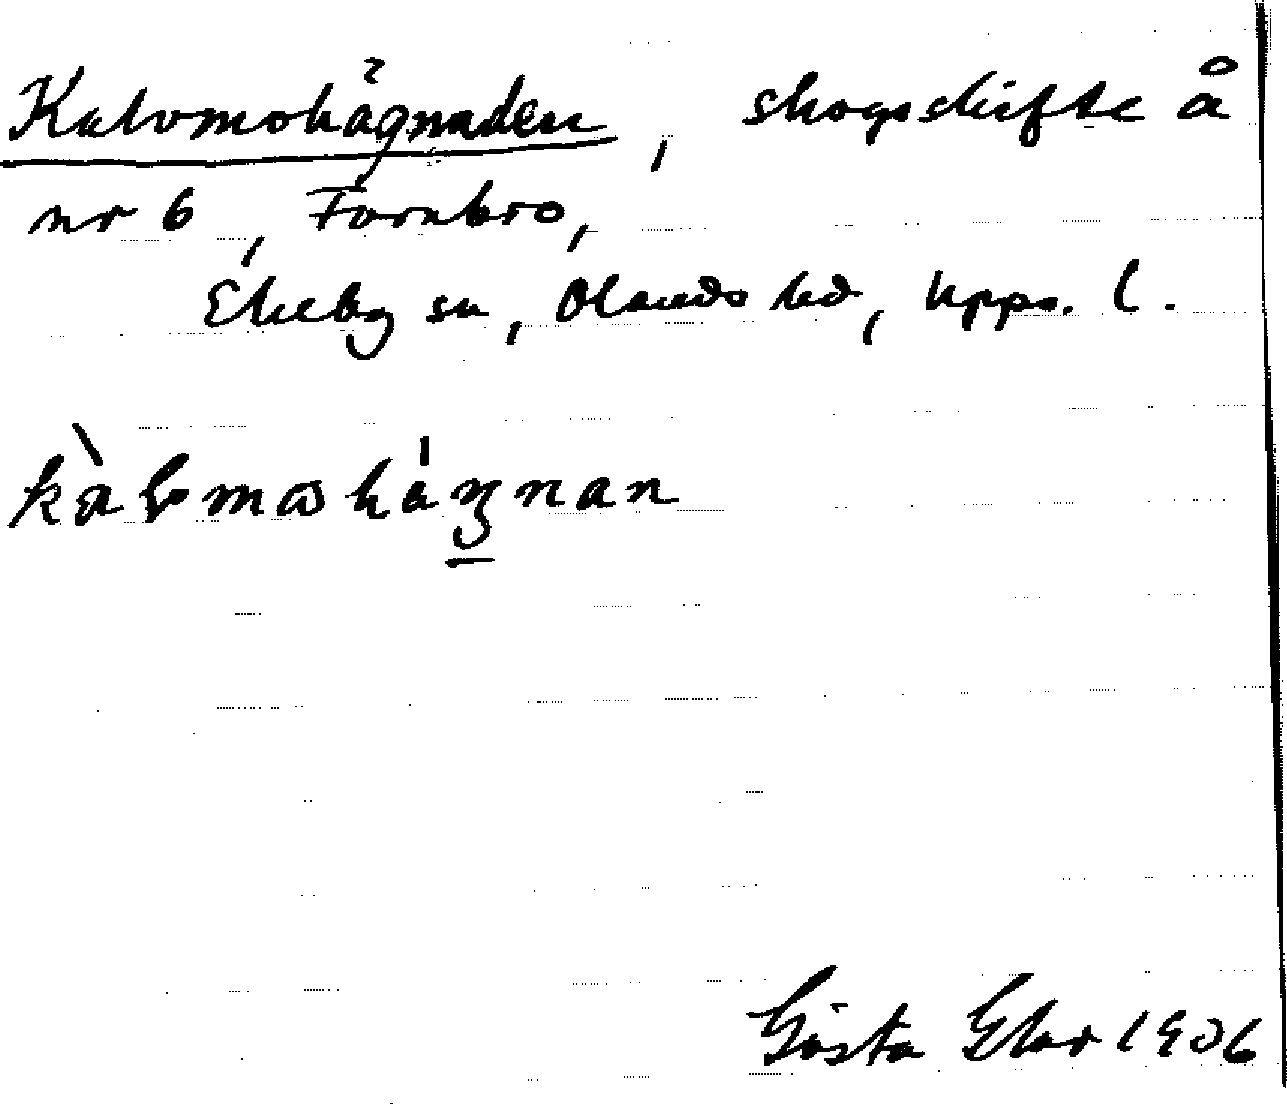 Kalvmohägnaden, skogsskifte å
nr 6, Fornbro,
Ekeby sn, Olands hd, Upps. l.
kàlvmɷhágnan
Gösta Eber 1906